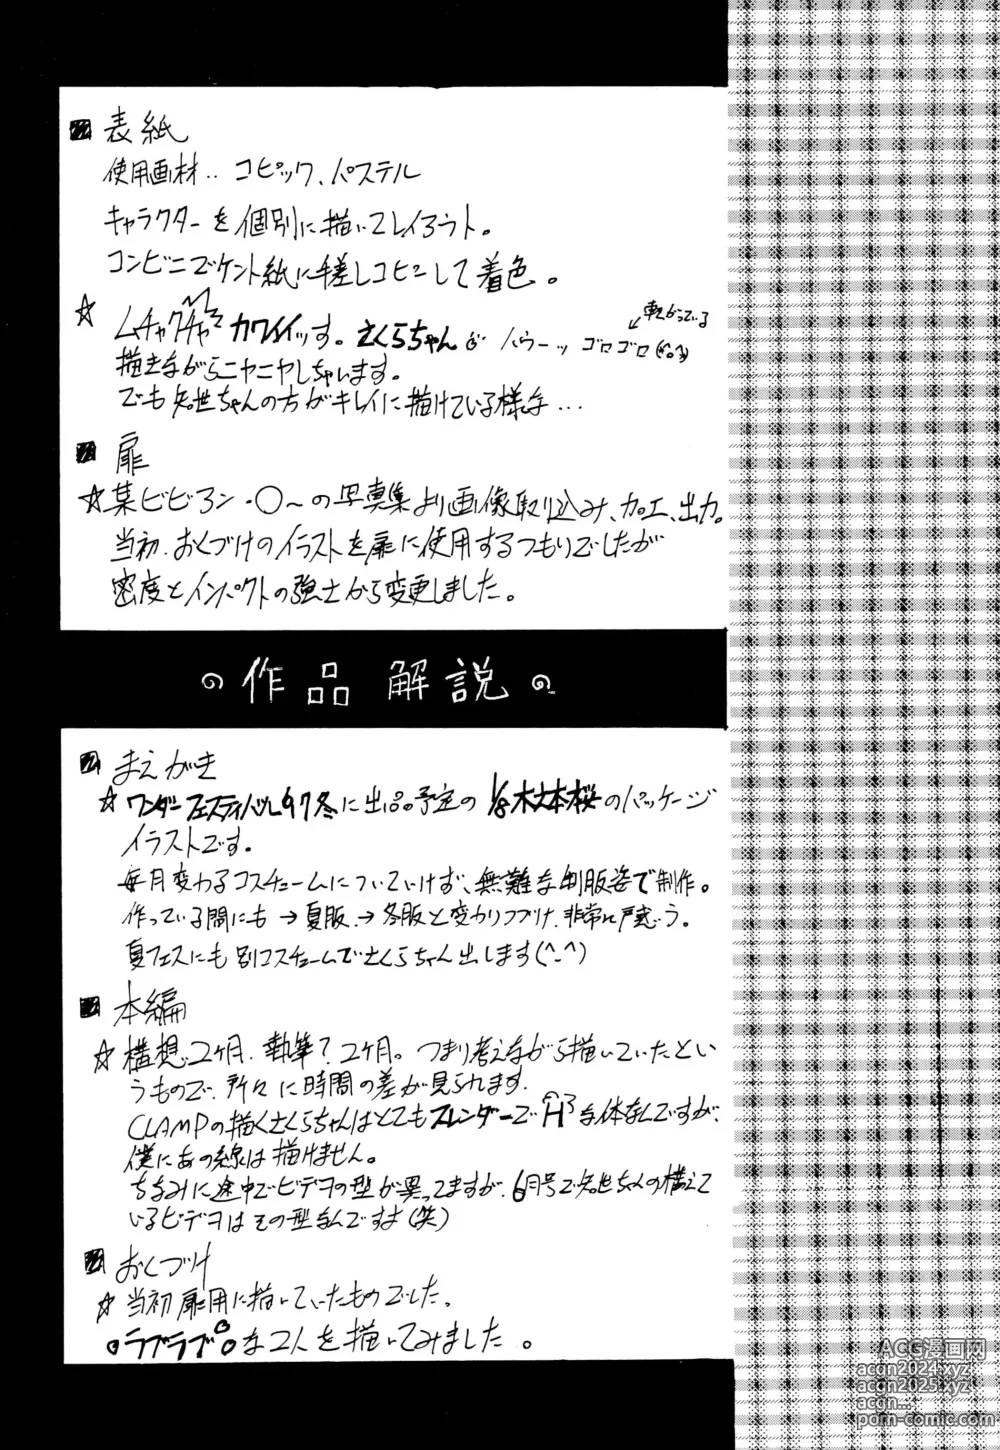 表紙
使用画材‥コピック、パステル
キャラクターを個別に描いてレイアウト。
コンビニでケント紙に手差しコピーして着色。
☆ムチャクチャカワイイッす。さくらちゃん
ハウーッ ゴロゴロ
転がっている
描きながらニヤニヤしちゃいます。
でも知世ちゃんの方がキレイに描けている様な…
扉
☆某ビビアン・○～の写真集より画像取り込み、加工、出力。
当初、おくづけのイラストを扉に使用するつもりでしたが
密度とインパクトの強さから変更しました。
作品解説
まえがき
☆ワンダーフェスティバル97冬に出品予定の1/8木之本桜のパッケージ
イラストです。
毎月変わるコスチュームについていけず、無難な制服姿で制作。
作っている間にも→夏服→冬服と変わりつづけ、非常に戸惑う。
夏フェスにも別コスチュームでさくらちゃん出します(^-^)
本編
☆構想‥2ヶ月、執筆?2ヶ月。つまり考えながら描いていたとい
うもので、所々に時間の差が見られます。
CLAMPの描くさくらちゃんはとてもスレンダーでHな体なんですが、
僕にあの線は描けません。
ちなみに途中でビデオの型が異ってますが、6月号で知世ちゃんの構えて
いるビデオはその型なんですよ(笑)
おくづけ
☆当初扉用に描いていたものでした。
ラブラブな2人を描いてみました。
ACG漫画网
acgn2024.xyz
acgn2025.xyz
acgn...
porn-comic.com